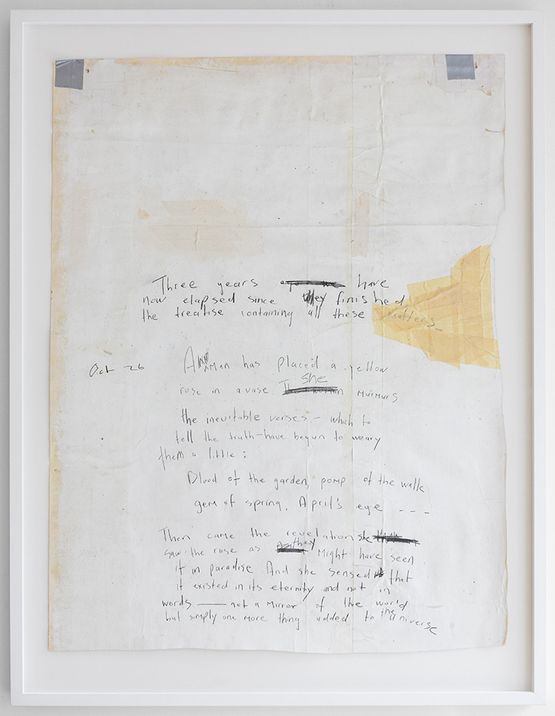 Three years have
now elapsed since they finished
the treatise containing all these matters_
Oct 26
A man has placed a yellow
rose in a vase she murmurs
the inevitable verses – which to
tell the truth – have begun to weary
them a little:
Blood of the garden, pomp of the walk
gem of spring, April's eye - - -
Then came the revelation she
saw the rose as they might have seen
it in paradise And she sensed that
it existed in its eternity and not in
words —— not a mirror of the world
but simply one more thing added to the universe